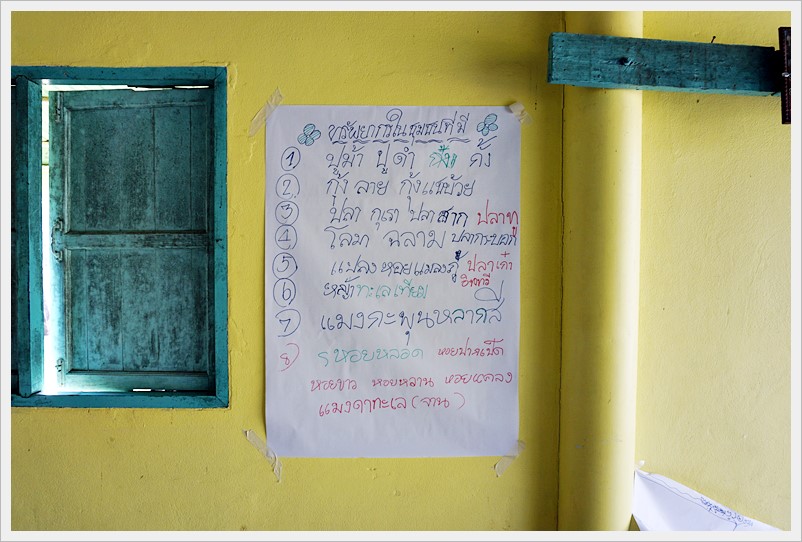 ทรัพยากรในชุมชนที่มี
1 ปูม้า ปูดำ กั้ง
2 กุ้ง ลาย กุ้งแชบ๊วย
3 ปลา กุเรา ปลาสาก ปลาทู
4 โลมา ฉลาม ปลากระบอก
5 แปลงหอยแมลงภู่ ปลาเก๋า
อินทรี
6 หญ้าทะเลเทียม
7 แมงกะพุนหลากสี
8 หอยหลอด หอยปากเป็ด
หอยขาว หอยหวาน หอยแคลง
แมงดาทะเล (จาน)